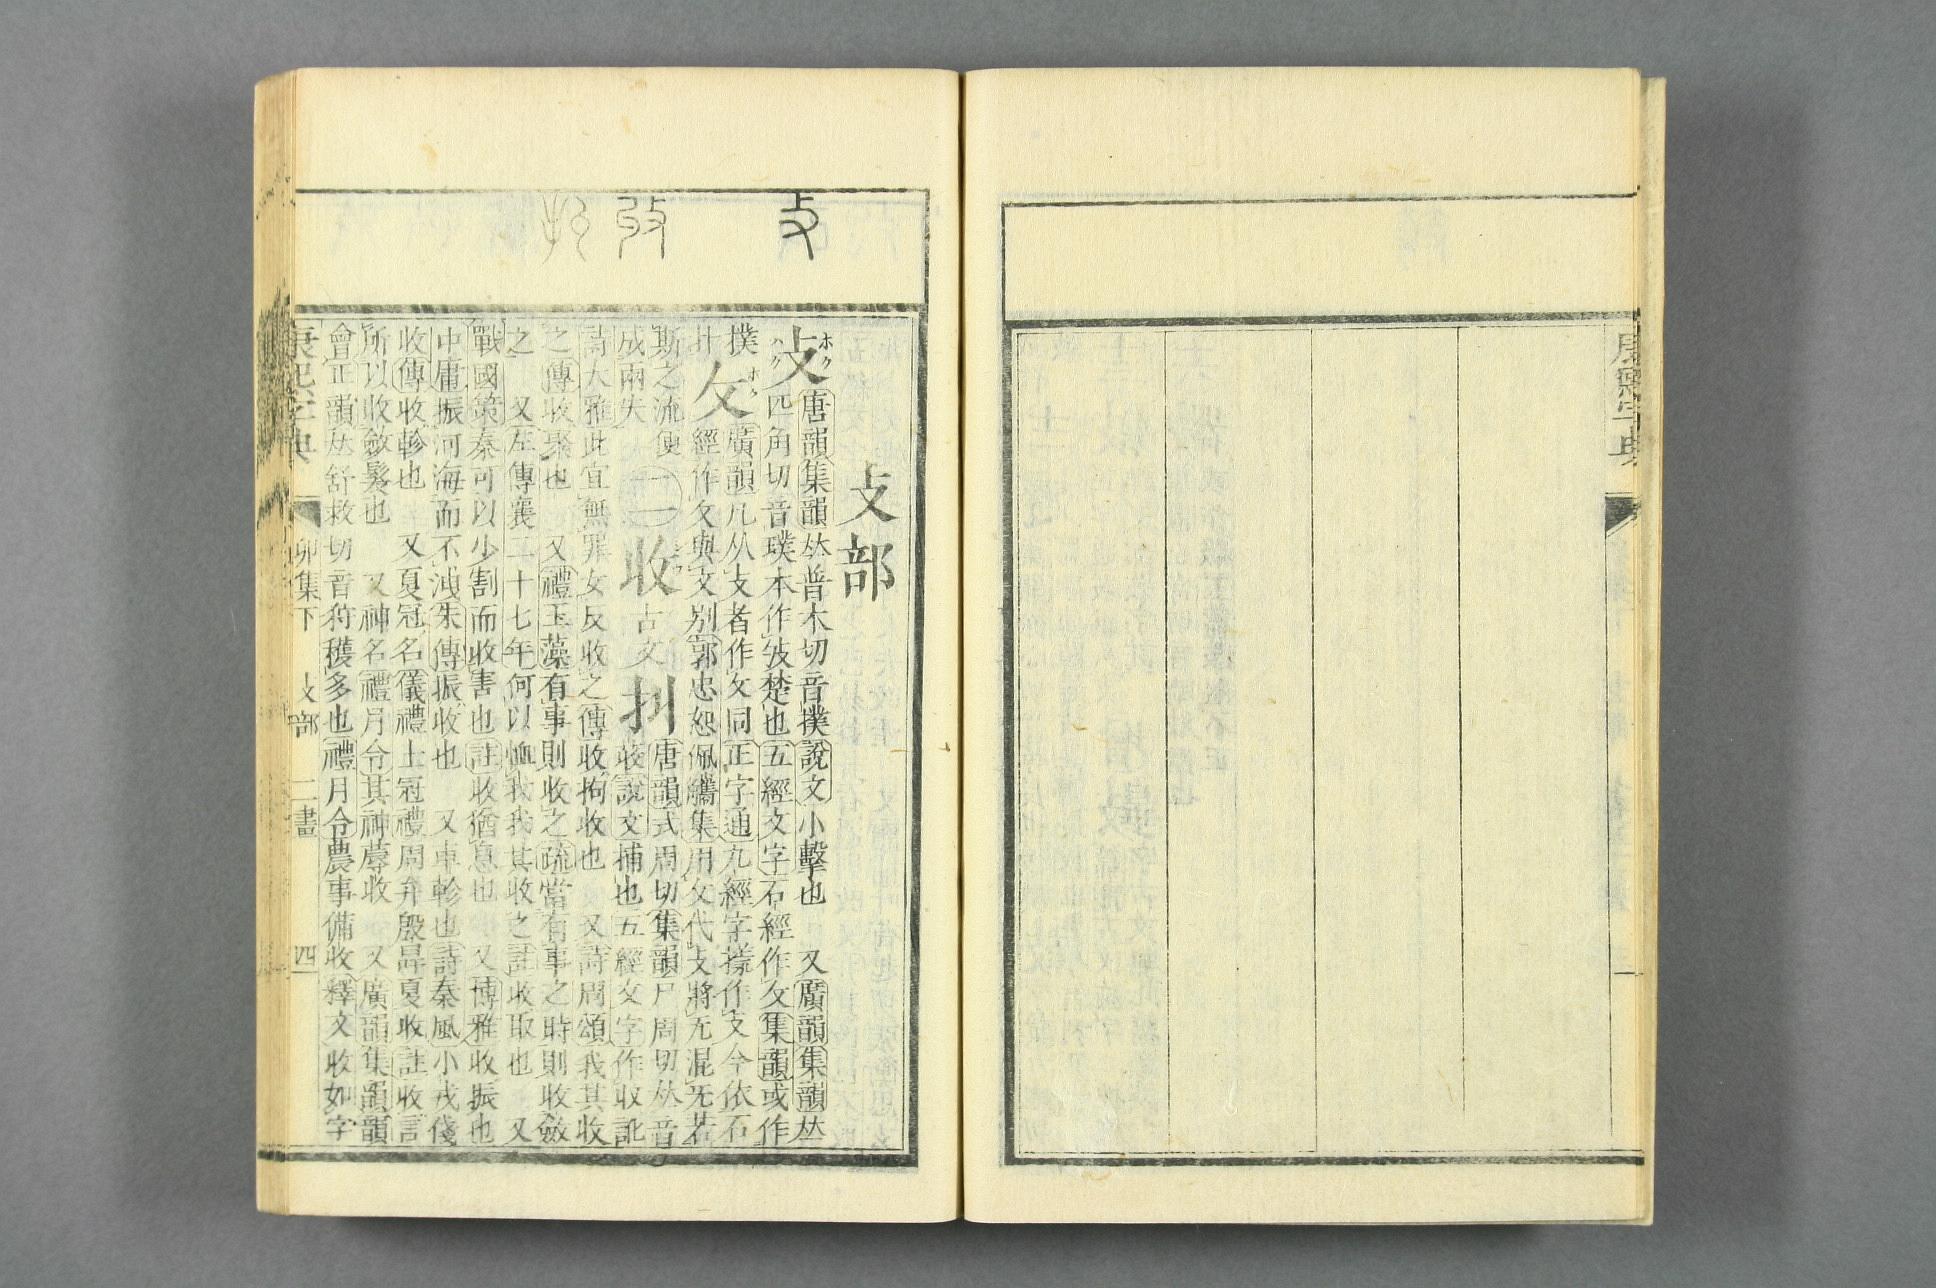 康熙字典
攴部
攴ホクハク唐韻集韻𠀤普木切音撲說文小擊也　又廣韻集韻𠀤
匹角切音璞本作攱楚也五經文字石經作攵集韻或作
撲
攵ホク廣韻凡从攴者作攵同正字通九經字㨾作攴今依石
經作攵與文别郭忠恕佩觿集用攵代攴將无混旡若
斯之流便
成兩失
二
收古文𢪛唐韻式周切集韻尸周切𠀤音
收說文捕也五經文字作収訛
詩大雅此宜無罪女反收之傳收拘收也　又詩周頌我其收
之傳收聚也　又禮玉藻有事則收之疏當有事之時則收斂
之　又左傳襄二十七年何以恤我我其收之註收取也　又
戰國策秦可以少割而收害也註收猶息也　又博雅收振也
中庸振河海而不洩朱傳振收也　又車軫也詩秦風小戎俴
收傳收軫也　又夏冠名儀禮士冠禮周弁殷冔夏收註收言
所以收斂髮也　又神名禮月令其神蓐收　又廣韻集韻韻
會正韻𠀤舒救切音狩穫多也禮月令農事備收釋文收如字
康熙字典　卯集下　攴部　二畫　四